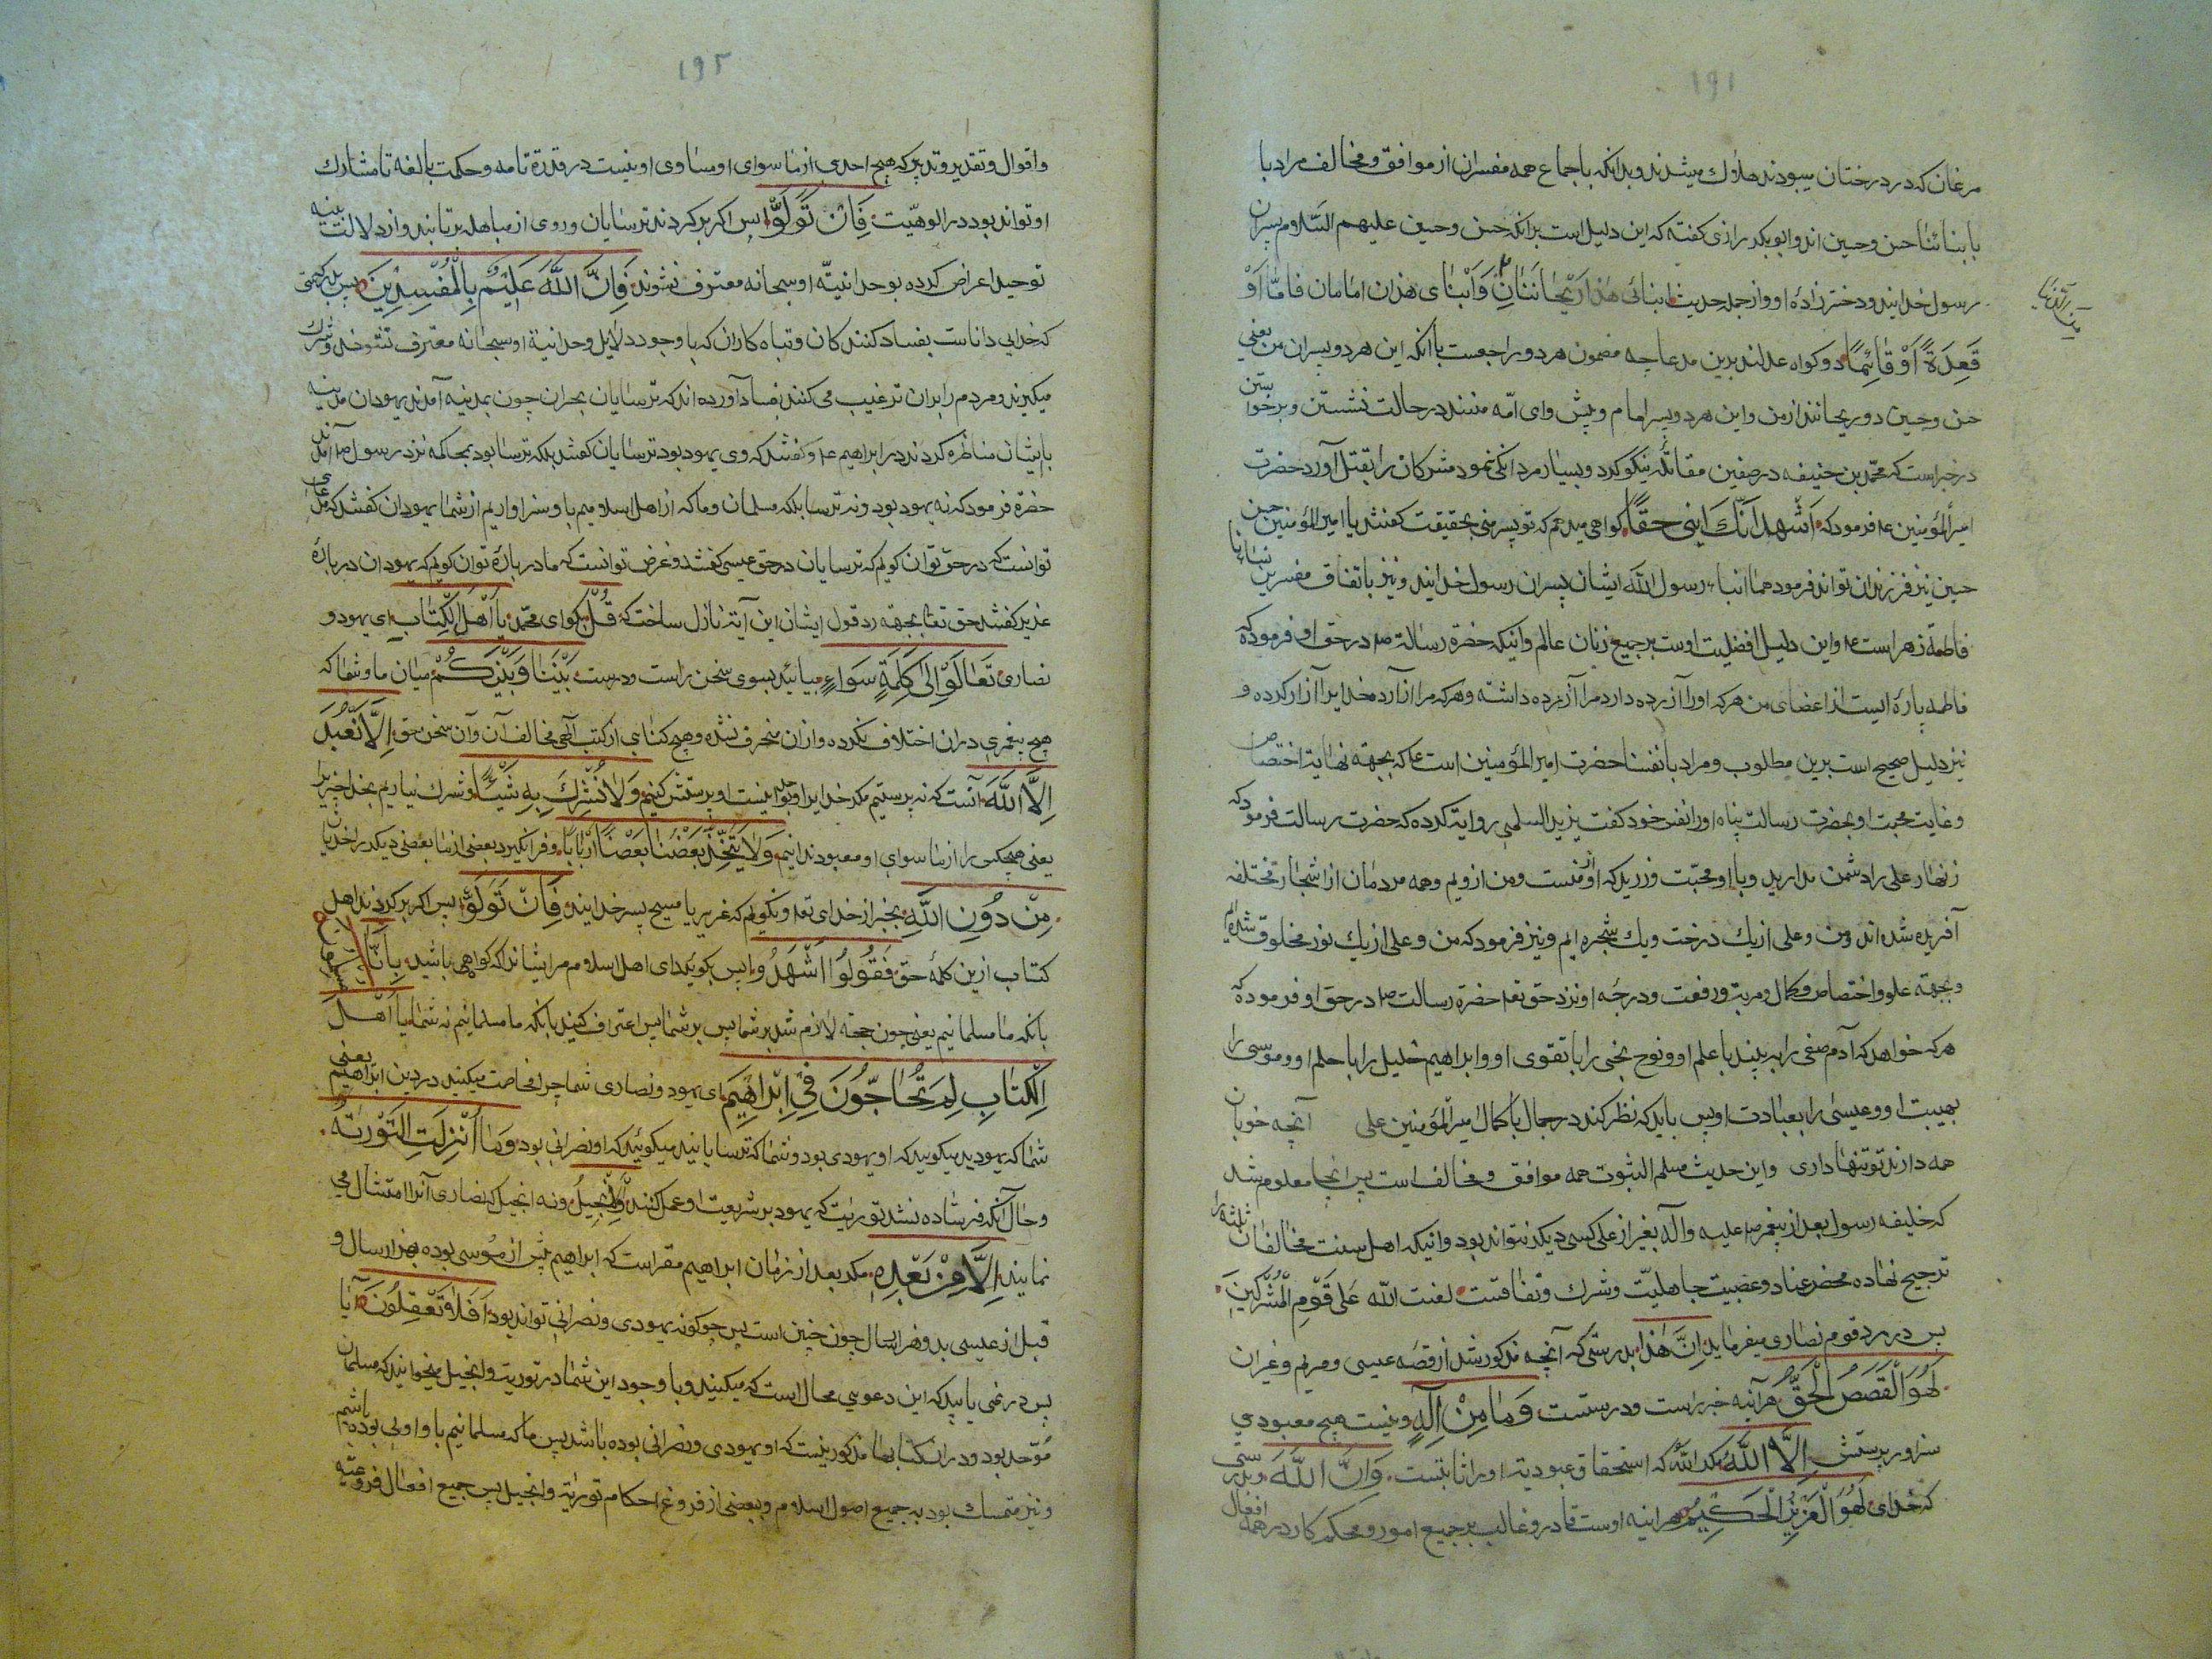 ۱۹۱
مرغان که در درختان میبودند هلاک میشدند و بدانکه باجماع همه مفسران از موافق و مخالف مراد با
بابنائنا حسن و حسین اند و ابوبکر رازی کفته که این دلیل است برانکه حسن و حسین علیهم السلام پسران
رسول خدایند و دختر زادۀ او و از جمله حدیث ابنائی هذا ریحانتان وَابنای هذان امامان قاما اَوْ
قَعِدَةً اَوْ قٰائِمًا دو کواه عدلند برین مدعا چه مضمون هر دو راجعست باانکه این هر دو پسران من یعنی
حسن و حسین دو ریحانند از من و این هر دو پسر امام و پیش وای امّه منند در حالت نشستن و برخواستن
در خبر است که محمّد بن حنیفه در صفین مقاتله نیکو کرد و بسیار مردانکی نمود مشرکان را بقتل آورد حضرت
امیرالمؤمنین ع فرمود که اَشْهدُ اَنَّکَ اِبنی حقًا کواهی میدهم که تو پسر منی بحقیقت کفتند یا امیرالمؤمنین حسن
حسین نیز فرزندان تواند فرمود هما ابنا رسول اللّه ایشان پسران رسول خدایند و نیز باتفاق مفسرین نساءنا
فاطمۀ زهراست ع و این دلیل افضلیت اوست بر جمیع زنان عالم وانیکه حضرة رسالة ص در حق او فرموده که
فاطمه پارۀ ایست از اعضای من هر که اورا آزرده دارد مرا آزرده داشته و هر که مرا ازارد خدایرا آزار کرده و
نیز دلیل صحیح است برین مطلوب و مراد بانفسنا حضرت امیرالمؤمنین است ع که بجهته نهایة اختصاص
و غایت محبت او بحضرت رسالت پناه اورا نفس خود کفت یزید السلمی روایة کرده که حضرت رسالت فرمود که
زنهار علی را دشمن مدارید و با او محبّت ورزید که او منست و من ازویم و همه مردمان از اشجار مختلفه
آفریده شده اند و من و علی از یك درخت و یك شجره ایم و نیز فرمود که من و علی از یك نور مخلوق شده ایم
و بجهة علو و اختصاص و کمال و مرتبه و رفعت و درجه او نزد حق تعا حضرة رسالت ص در حق او فرموده که
هر که خواهد که آدم صفی را به بیند با علم او و نوح نجی را با تقوی او و ابراهیم خلیل را با حلم او و موسی را
بهیبت او و عیسی را بعبادت او پس باید که نظر کند در جمال با کمال امیرالمؤمنین علی آنچه خوبان
همه دارند تو تنها داری و این حدیث مسلم الثبوت همه موافق و مخالف است پس از انجا معلوم شد
که خلیفه رسول بعد از پیغمبر ص علیه و آله بغیر از علی کسی دیکر نتواند بود وانیکه اهل سنت مخالفان ثلثه را
ترجیح نهاده محض عناد و عصبیت جاهلیّت و شرك و نفاقست لعنت اللّه عَلی قَوْمِ الْمُشْرِکینَ
پس در رد قوم نصاری میفرماید اِنَّ هٰذٰا بدرستی که آنچه مذکور شد از قصه عیسی و مریم و غیران
لَهُوَ الْقَصَصُ الْحَقُّ هر آینه خبر راست و درستست وَمٰا مِنْ اِلٰهٍ و نیست هیچ معبودی
سزاور پرستش اِلَّا اللّٰهُ مکر اللّه که استحقاق عبودیة اورا ثابتست وَاِنَّ اللّٰهَ و بدرستی
که خدای لَهُوَ الْعَزیزُ الْحَکیمُ هراینه اوست قادر و غالب بر جمیع امور و محکم کار در همه افعال
۱۹۲
و اقوال و تقدیر و تدبیر که هیچ احدی از ما سوای او مساوی او نیست در قدرة تامه و حکمت بالغه تا مشارك
او تواند بود در الوهیّت فَاِنْ تَوَلَّوْا پس اکر بر کردند ترسایان و روی از مباهله بر تابند و از دلالت بینه
توحید اعراض کرده بوحدانیّة او سبحانه معترف نشوند فَاِنَّ اللّٰهَ عَلیمٌ بِالْمُفْسِدینَ پس بدرستی
که خدایی داناست بفساد کنندکان و تباه کاران که باوجود دلایل وحدانیة او سبحانه معترف نشوند و شرك
میکیرند و مردم را بران ترغیب می کنند آورده اند که ترسایان بحران چون بمدینه آمدند یهودان مدینه
با ایشان مناظره کردند در ابراهیم ع و کفتند که وی یهود بود ترسایان کفتند بلکه ترسا بود بمحاکمه نزد رسول ص آمدند
حضرة فرمود که نه یهود بود و نه ترسا بلکه مسلمان و ما که از اهل اسلامیم باو سزاواریم از شما یهودان کفتند که مدعای
تو انست که در حق تو ان کوئیم که ترسایان در حق عیسی کفتند و غرض تو انست که ما در بارۀ تو ان کویم که یهودان در بارۀ
عزیر کفتند حق تعا بجهة رد قول ایشان این آیة نازل ساخت که قُلْ بکو ای محمّد یٰا اَهْلَ الْکِتٰابِ ای یهود و
نصاری تَعٰالَوْا اِلیٰ کَلِمَةٍ سَوٰاءٍ بیائید بسوی سخن راست و درست بَیْنَنٰا وَبَیْنَکُمْ میان ما و شما که
هیچ پیغمبری دران اختلاف نکرده و ازان منحرف نشده و هیچ کتابی از کتب آلهی مخالف آن و آن سخن حق اَلَّا نَعْبُدَ
اِلَّا اللّٰهَ آنست که نه پرستیم مکر خدایرا وَلٰا نُشْرِكَ بِهِ شَیْئًا و شرك نیاریم بخدا چیزیرا
یعنی هیچکس را از ما سوای او معبود ندانیم وَلٰا یَتَّخِذَ بَعْضُنٰا بَعْضًا اَرْبٰابًا و فرا نکیرد بعضی از ما بعضی دیکر را خدایان
مِنْ دُونِ اللّٰهِ بجز از خدای تعا و نکوئیم که عزیر یا مسیح پسر خدایند فَاِنْ تَوَلَّوْا پس اکر بر کردند اهل
کتاب ازین کلمۀ حق فَقُولُوا اشْهَدُوا پس بکوئید ای اهل اسلام مر ایشانرا که کواهی باشید بِاَنَّا مسلمون
بانکه ما مسلمانیم یعنی چون حجة لازم شد بر شما پس اعتراف کنید بانکه ما مسلمانیم نه شما یٰا اَهْلَ
الْکِتٰابِ لِمَ تُحٰاجُّونَ فی اِبْرٰاهیمَ ای یهود و نصاری شما چرا مخاصمت میکنید در دین ابراهیم یعنی
شما که یهودید میکوئید که او یهودی بود و شما که ترسایانید میکوئید که او نصرانی بود وَمٰا اُنْزِلَتِ التَّوْرٰیةُ
و حال آنکه فرستاده نشد توریت که یهود بر شریعت او عمل کنند وَالْاِنْجیلُ و نه انجیل که نصاری آنرا امتثال می
نمایند اِلَّا مِنْ بَعْدِهِ مکر بعد از زمان ابراهیم مقرر است که ابراهیم پیش از موسی بوده بهزار سال و
قبل از عیسی بدو هزار سال چون چنین است پس چوکونه یهودی و نصرانی تواند بود اَفَلٰا تَعْقِلُونَ آیا
پس در نمی یابید که این دعوی محال است که میکنید و باوجود این شما در توریة و انجیل میخوانید که مسلمان
موّحد بود و دران کتابها مذکور نیست که او یهودی و نصرانی بوده باشد پس ما که مسلمانیم باو اولی بوده باشیم
و نیز متمسك بود به جمیع اصول اسلام و بعضی از فروع احکام توریة و انجیل پس جمیع افعال فروعیّه